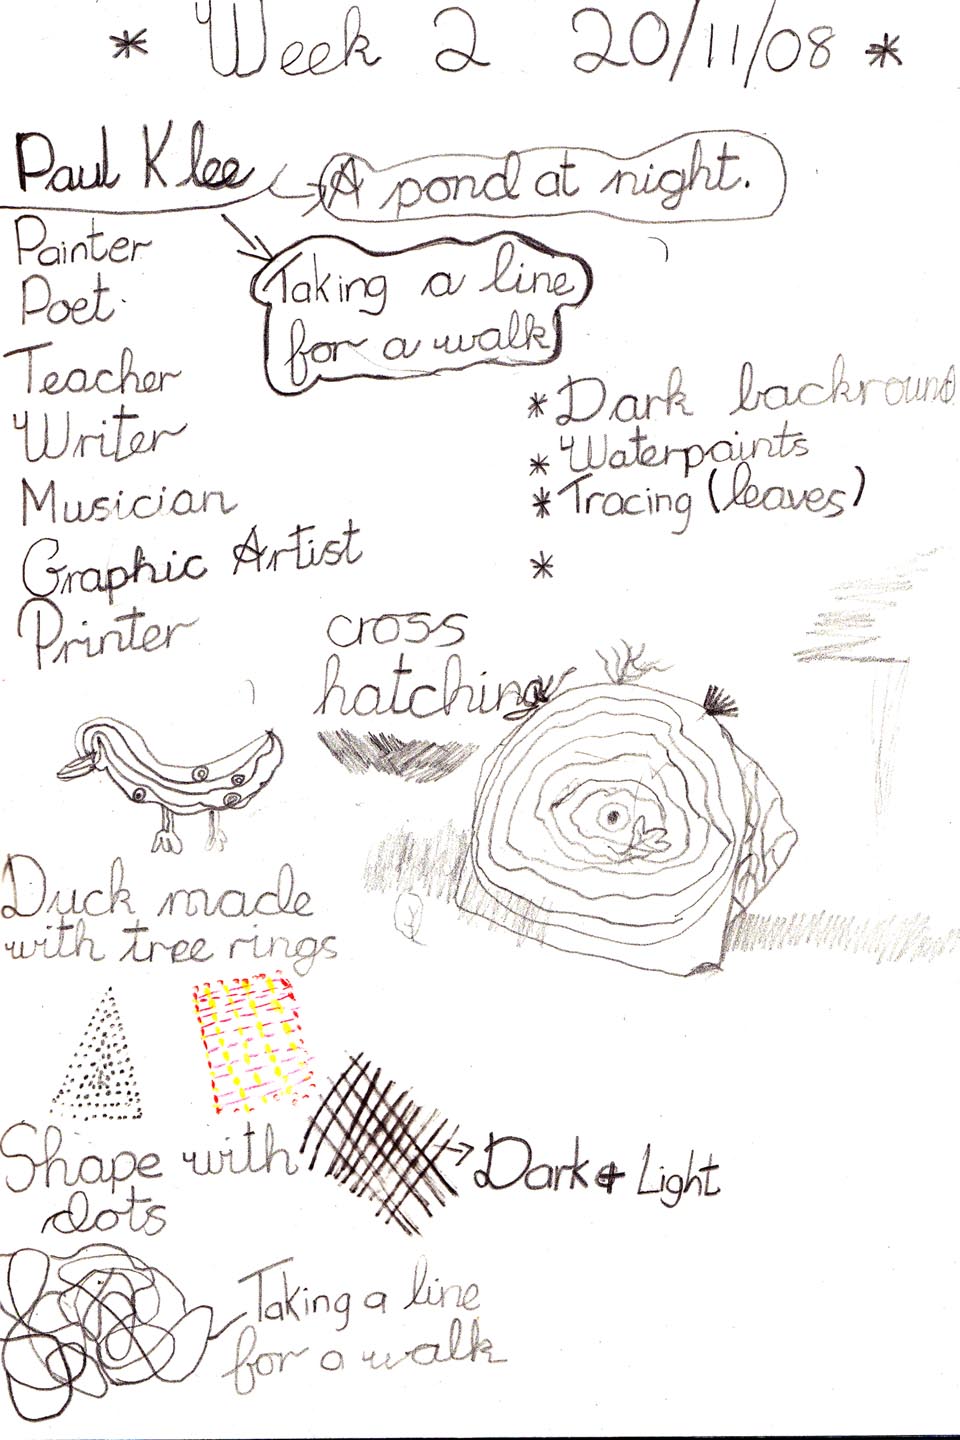 * Week 2 20/11/08 *
Paul Klee
A pond at night.
Taking a line
for a walk
Painter
Poet
Teacher
Writer
Musician
Graphic Artist
Printer
* Dark backround
* Waterpaints
* Tracing (leaves)
*
cross
hatching
Duck made
with tree rings
Shape with
dots
Dark & Light
Taking a line
for a walk